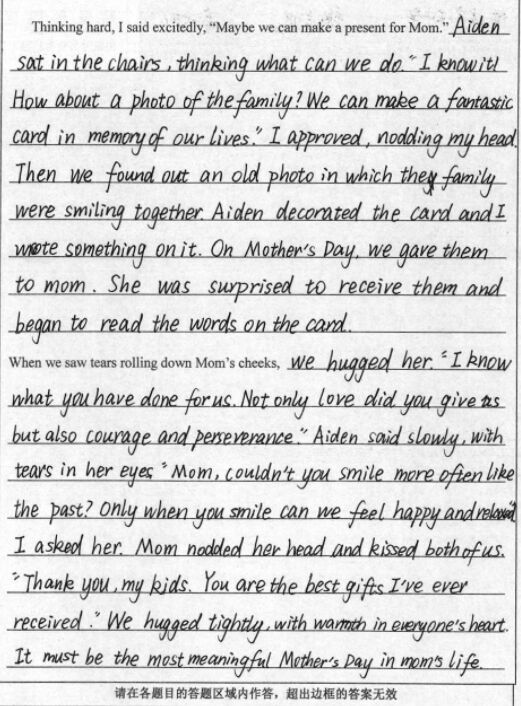 Thinking hard, I said excitedly, “Maybe we can make a present for Mom.” Aiden
sat in the chairs, thinking what can we do. “I know it!
How about a photo of the family? We can make a fantastic
card in memory of our lives.” I approved, nodding my head.
Then we found out an old photo in which the family
were smiling together. Aiden decorated the card and I
wrote something on it. On Mother's Day, we gave them
to mom. She was surprised to receive them and
began to read the words on the card.
When we saw tears rolling down Mom's cheeks, we hugged her. “I know
what you have done for us. Not only love did you give us
but also courage and perseverance.” Aiden said slowly, with
tears in her eyes. “Mom, couldn't you smile more often like
the past? Only when you smile can we feel happy and relaxed”
I asked her. Mom nodded her head and kissed both of us.
“Thank you, my kids. You are the best gifts I've ever
received.” We hugged tightly, with warmth in everyone's heart.
It must be the most meaningful Mother's Day in mom's life.
请在各题目的答题区域内作答，超出边框的答案无效